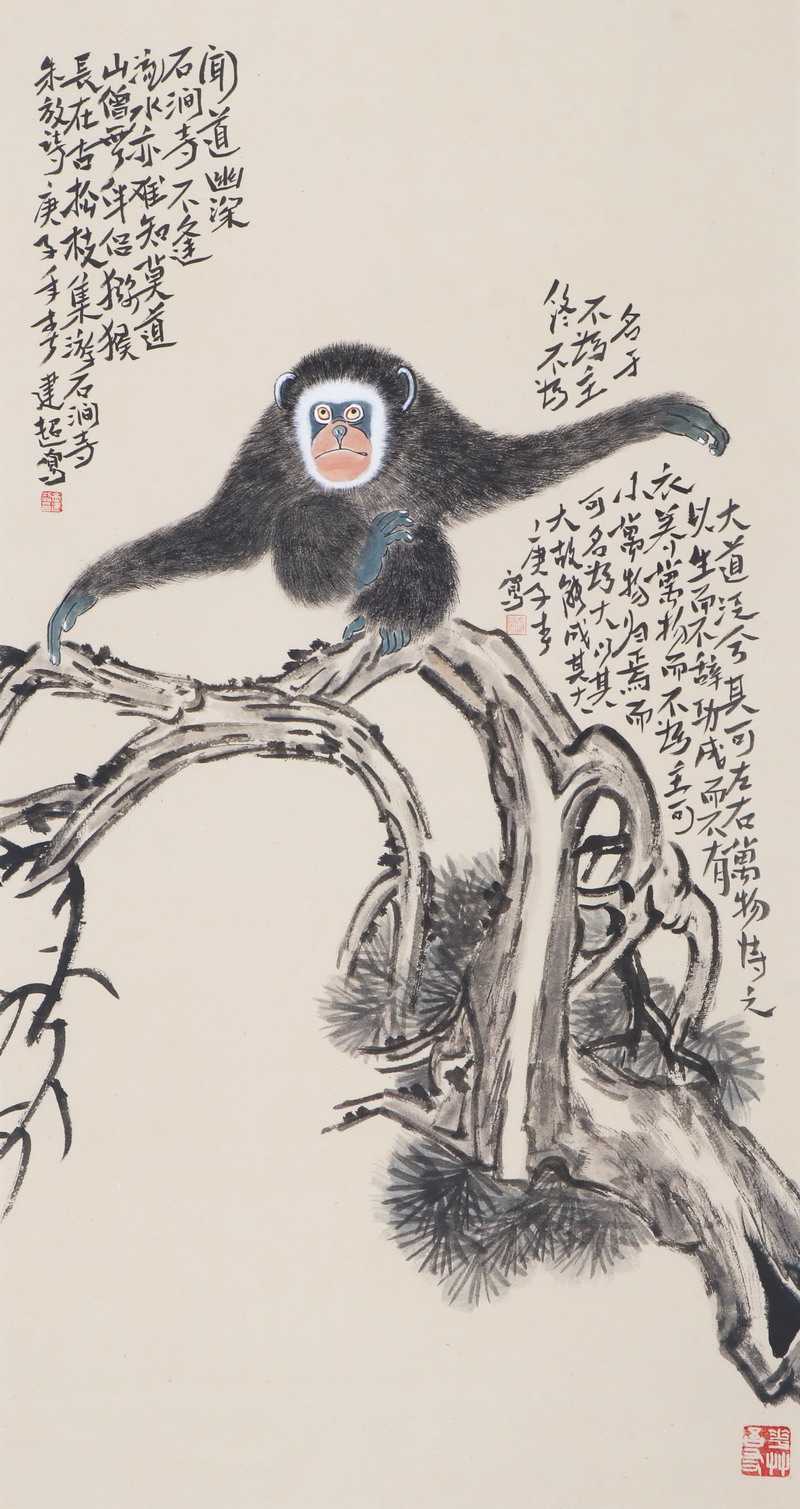 闻道幽深
石涧寺不逢
流水亦难知莫道
山僧無伴侣猕猴
長在古松枝集游石涧寺
朱放诗庚子年春建超寫
大道泛兮其可左右萬物恃之
以生而不辞功成而不有
衣养萬物而不為主可
名于
小萬物归焉而
不為主
可名為大以其
终不為
大故能成其大
庚子春
寫